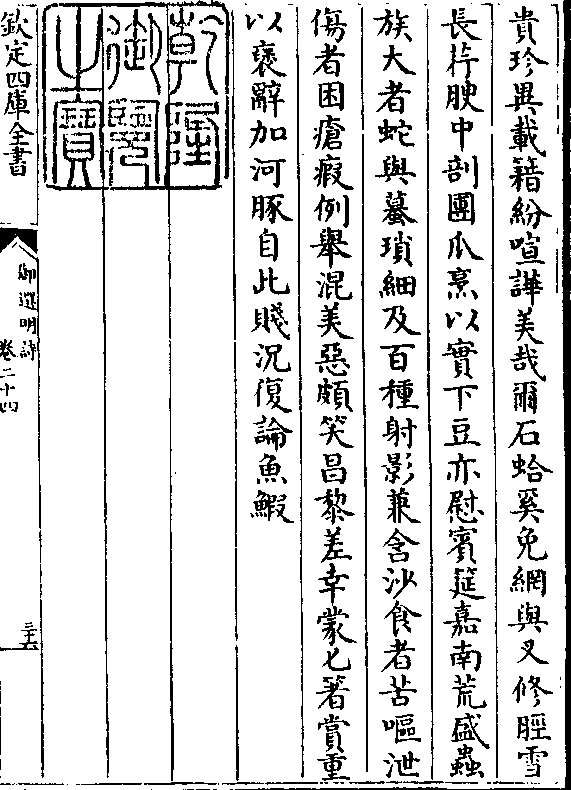 貴珍異載籍紛喧譁美哉爾石蛤奚免網與叉修脛雪
長芹腴中剖團瓜烹以實下豆亦慰賓筵嘉南荒盛蟲
族大者蛇與蟇瑣細及百種射影兼含沙食者苦嘔泄
傷者困瘡瘕例舉混美惡頗笑昌黎差幸蒙匕箸賞重
以褒辭加河豚自此賤況復論魚鰕
乾隆
御覽
之寶
欽定四庫全書
御選明詩
卷二十四
三十六